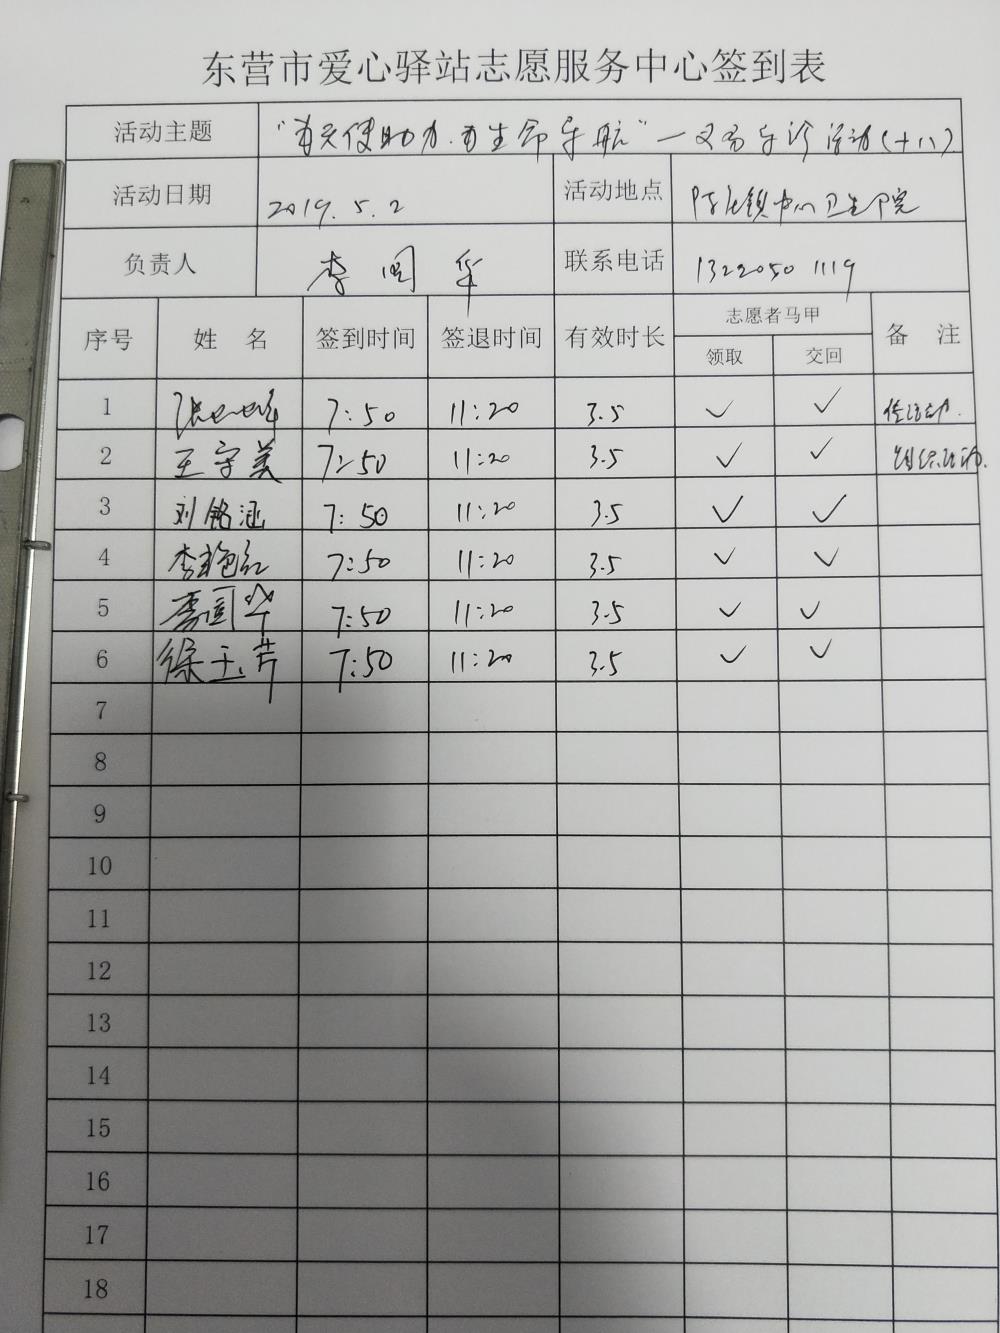 东营市爱心驿站志愿服务中心签到表
活动主题 "为天使助力.为生命导航"一义务导诊活动(十八)
活动日期 2019.5.2 活动地点 中心卫生院
负责人 李国华 联系电话 13220501119
序号 姓 名 签到时间 签退时间 有效时长 志愿者马甲 备 注
领取 交回
1 7:50 11:20 3.5 ✓ ✓ 活动.
2 王守美 7:50 11:20 3.5 ✓ ✓ 组织活动.
3 刘铭涵 7:50 11:20 3.5 ✓ ✓
4 李艳红 7:50 11:20 3.5 ✓ ✓
5 李国华 7:50 11:20 3.5 ✓ ✓
6 徐玉芹 7:50 11:20 3.5 ✓ ✓
7
8
9
10
11
12
13
14
15
16
17
18